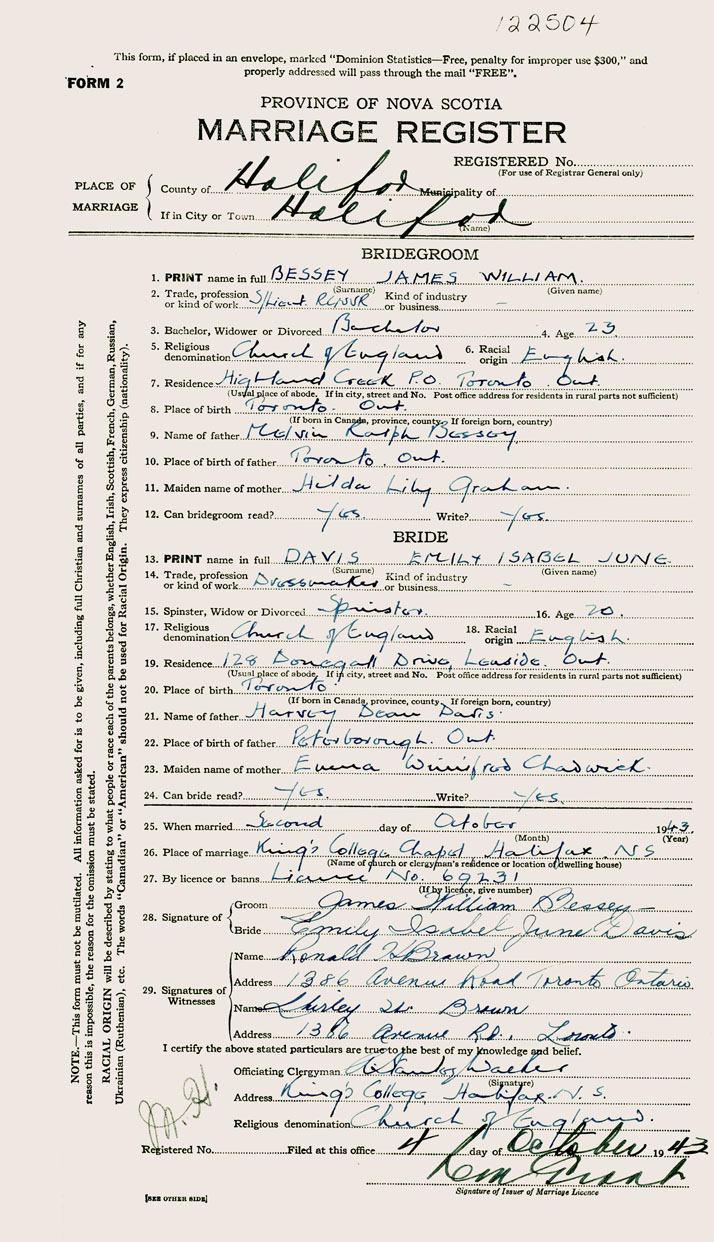 122504
This form, if placed in an envelope, marked "Dominion Statistics—Free, penalty for improper use $300," and
properly addressed will pass through the mail "FREE".
FORM 2
PROVINCE OF NOVA SCOTIA
MARRIAGE REGISTER
REGISTERED No.
(For use of Registrar General only)
PLACE OF MARRIAGE
County of Halifax Municipality of
If in City or Town Halifax
(Name)
BRIDEGROOM
1. PRINT name in full BESSEY JAMES WILLIAM.
(Surname) (Given name)
2. Trade, profession or kind of work S/Lieut. RCNVR Kind of industry or business -
3. Bachelor, Widower or Divorced Bachelor 4. Age 23
5. Religious denomination Church of England 6. Racial origin English.
7. Residence Highland Creek P.O. Toronto Ont.
(Usual place of abode. If in city, street and No. Post office address for residents in rural parts not sufficient)
8. Place of birth Toronto. Ont.
(If born in Canada, province, county. If foreign born, country)
9. Name of father Melvin Ralph Bessey
10. Place of birth of father Toronto. Ont.
11. Maiden name of mother Hilda Lily Graham.
12. Can bridegroom read? Yes. Write? Yes.
BRIDE
13. PRINT name in full DAVIS EMILY ISABEL JUNE
(Surname) (Given name)
14. Trade, profession or kind of work Dressmaker Kind of industry or business -
15. Spinster, Widow or Divorced Spinster. 16. Age 20.
17. Religious denomination Church of England 18. Racial origin English.
19. Residence 128 Donegall Drive, Leaside. Ont.
(Usual place of abode. If in city, street and No. Post office address for residents in rural parts not sufficient)
20. Place of birth Toronto
(If born in Canada, province, county. If foreign born, country)
21. Name of father Harvey Dean Davis.
22. Place of birth of father Peterborough. Ont
23. Maiden name of mother Emma Winifred Chadwick.
24. Can bride read? Yes. Write? Yes.
25. When married Second day of October 1943.
(Month) (Year)
26. Place of marriage King's College Chapel Halifax. NS
(Name of church or clergyman's residence or location of dwelling house)
27. By licence or banns Licence No. 69231
(If by licence, give number)
28. Signature of
Groom James William Bessey
Bride Emily Isabel June Davis
29. Signatures of Witnesses
Name Ronald H Brown
Address 1386 Avenue Road Toronto Ontario
Name Shirley W Brown
Address 1386 Avenue Rd., Toronto.
I certify the above stated particulars are true to the best of my knowledge and belief.
Officiating Clergyman A Stanley Walker
(Signature)
Address King's College Halifax. N.S.
Religious denomination Church of England.
Registered No. Filed at this office 4 day of October 1943
Signature of Issuer of Marriage Licence
[SEE OTHER SIDE]
NOTE.—This form must not be mutilated. All information asked for is to be given, including full Christian and surnames of all parties, and if for any
reason this is impossible, the reason for the omission must be stated.
RACIAL ORIGIN will be described by stating to what people or race each of the parents belongs, whether English, Irish, Scottish, French, German, Russian,
Ukrainian (Ruthenian), etc. The words "Canadian" or "American" should not be used for Racial Origin. They express citizenship (nationality).